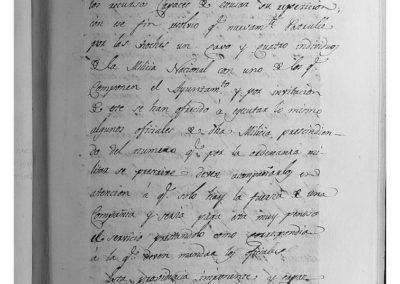 los recursos capaces de evitar su repeticion;
con ese fin
por las noches un cavo y cuatro individuos
de la Milicia Nacional con uno de los qᵉ
componen el Ayuntamᵗᵒ y por invitacion
de ese se han ofrecido á egecutar lo mismo
algunos oficiales de dha Milicia, prescindien-
do del numero qᵉ por la ordenanza mi-
litar se previene deven acompañarles en
atencion á qᵉ solo hay la fuerza de una
Compañia y seria muy penoso
el servicio prestandolo como corresponderia
á la qᵉ deven mandar los oficiales.
Esta providencia imponente y capaz